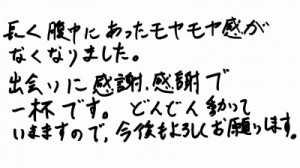 長く腹中にあったモヤモヤ感が
なくなりました。
出会りに感謝、感謝で
一杯です。どんどん動かして
いますので、今後もよろしくお願いします。